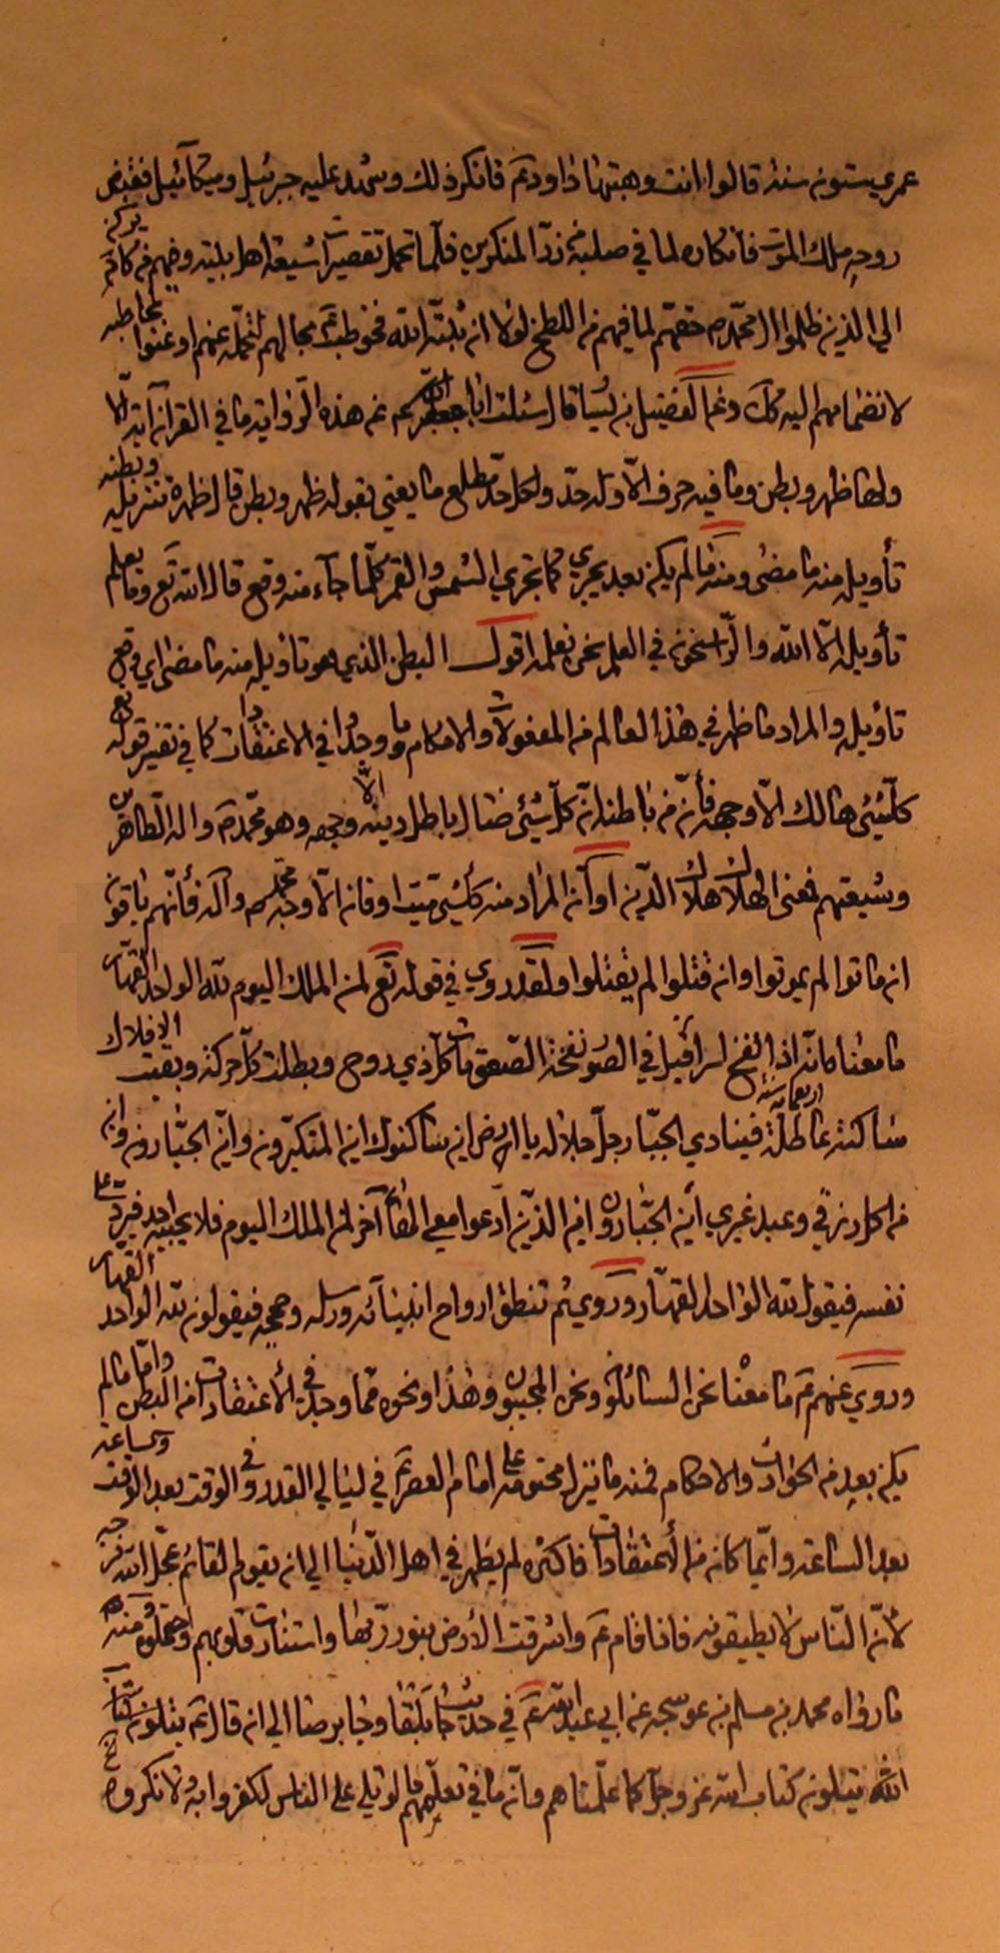 عمري ستون سنة قالوا انت وهبتها لداود ع فانكر ذلك وشهد عليه جبرئيل وميكائيل فقبض
روحه ملك الموت فانكاره لما في صلبه من ذر المنكرين فلما تحمل تقصيرات شيعة اهل بيته وضمهم
الى الذين ظلموا ال محمد حقهم لما فيهم من اللطخ لولا ان ثبته الله فخوطب بما لهم لتحمله عنهم او عنوا
لانضمامهم اليه كل وعن الفضيل بن يسار قال سئلت ابا جعفر ع عن هذه الرواية ما في القرآن آية الا
ولها ظهر وبطن وما فيه حرف الا وله حد ولكل حد مطلع ما يعني بقوله ظهر وبطن قال ظهره تنزيله وبطنه
تأويله منه ما مضى ومنه ما لم يكن بعد يجري كما تجري الشمس والقمر كلما جاء منه وقع قال الله تع وما يعلم
تأويله الا الله والراسخون في العلم نحن نعلمه اقول البطن الذي هو تأويله منه ما مضى اي وقع
تأويله والمراد ما ظهر في هذا العالم من المفعولات والاحكام وما وجد في الاعتقادات كما في تفسير قوله تع
كل شيئ هالك الا وجهه فأن من باطنه ان كل شيئ ضال باطل دينه الا وجهه وهو محمد ص واله الطاهرين
وشيعتهم فمعنى الهلاك هلاك الدين او ان المراد منه كل شيئ ميت او فان الا وجه محمد ص وآله فأنهم باقون
ان ماتوا لم يموتوا وان قتلوا لم يقتلوا ولقد روي في قوله تع لمن الملك اليوم لله الواحد القهار
ما معناه انه اذا نفخ اسرافيل في الصور نفخة الصعق مات كل ذي روح وبطلت كل حركة وبقيت الافلاك
ساكنة عاطلة اربعمائة سنة فينادي الجبار جل جلاله يا ارض اين ساكنوك اين المتكبرون واين الجبارون واين
من اكل رزقي وعبد غيري أين الجبارون اين الذين ادعوا معي الها آخر لمن الملك اليوم فلا يجيبه احد فيرد على
نفسه فيقول لله الواحد القهار وروي ثم تنطق ارواح انبيائه ورسله وحججه فيقولون لله الواحد القهار
وروي عنهم ع ما معناه نحن السائلون ونحن المجيبون وهذا ونحوه مما وجد في الأعتقادات من البطن واما ما لم
يكن بعد من الحوادث والاحكام فمنه ما ينزل محتومه على امام العصر ع في ليالي القدر وفي الوقت بعد الوقت والساعة
بعد الساعة وانما كان من الأعتقادات فاكثره لم يظهر في اهل الدنيا الى ان يقوم القائم عجل الله فرجه
لأن الناس لا يطيقونه فاذا قام ع واشرقت الارض بنور ربها واستنارت قلوبهم واحتملوه ومنه
ما رواه محمد بن مسلم بن عوسجه عن ابي عبد الله ع في حديث جابلقا وجابرصا الى ان قال ع يتلون كتاب
الله يتلون كتاب الله عز وجل كما علمناهم وان ما في تعليمهم ما لو تلي على الناس لكفروا به ولانكروه